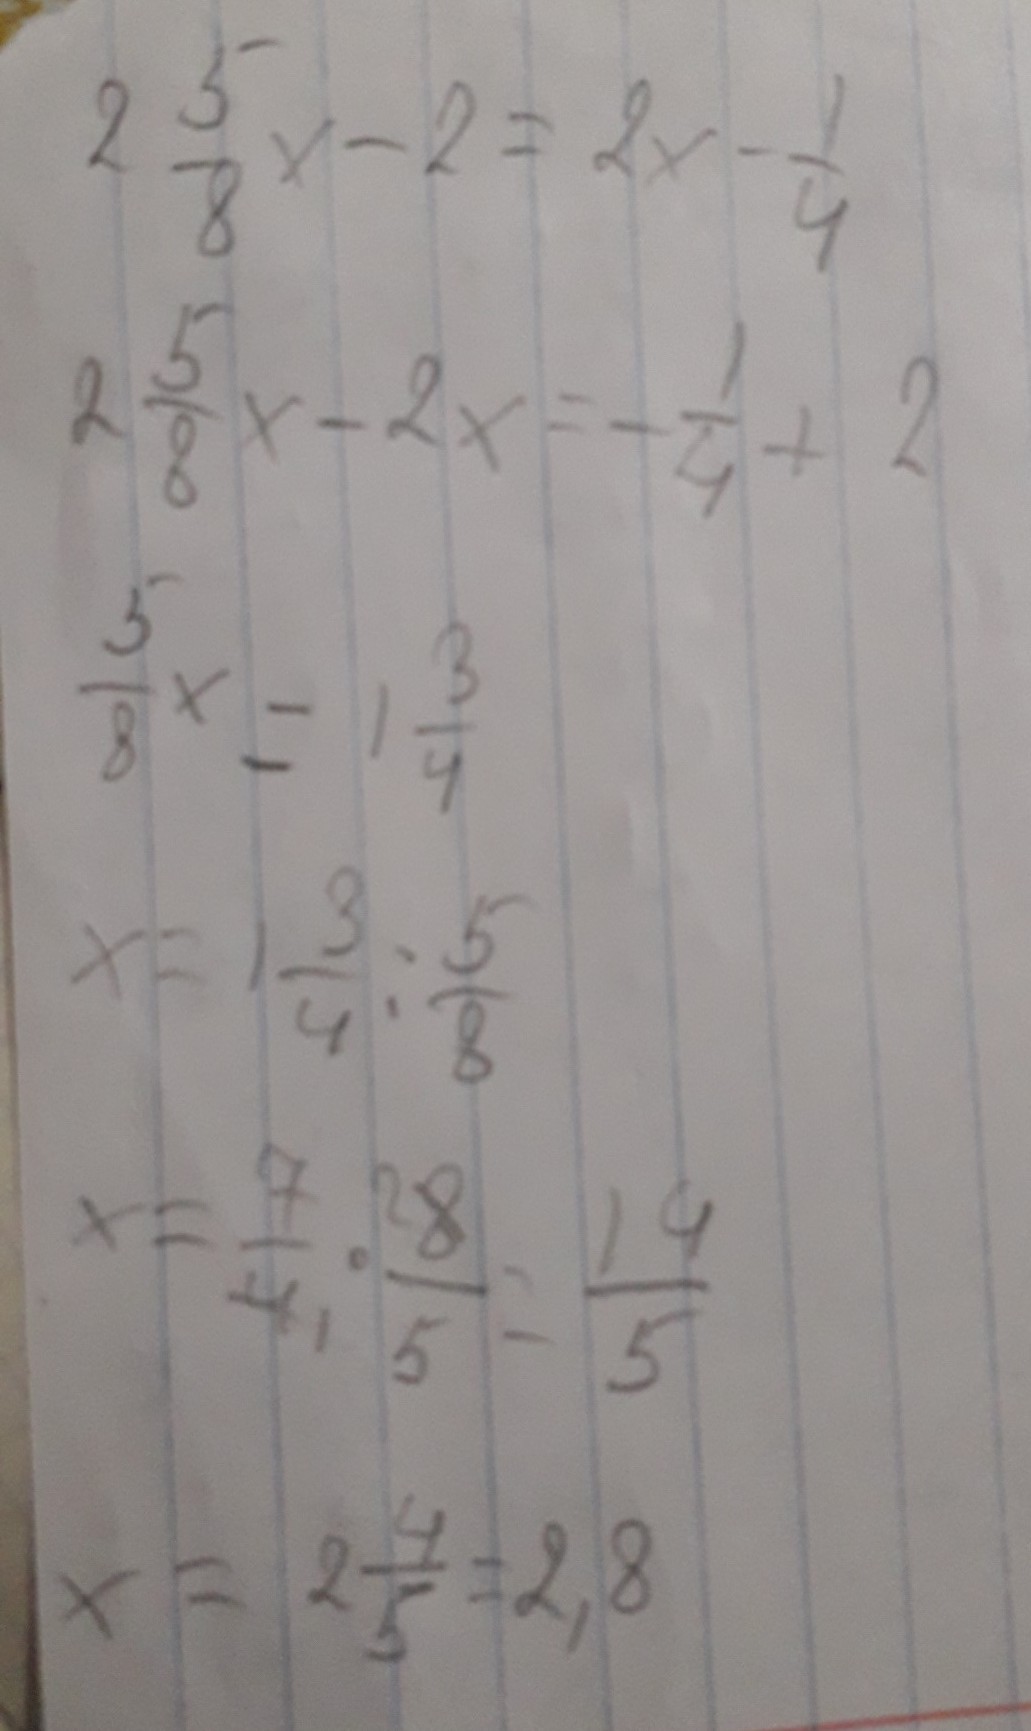 2 5/8 x - 2 = 2x - 1/4
2 5/8 x - 2x = - 1/4 + 2
5/8 x = 1 3/4
x = 1 3/4 : 5/8
x = 7/4₁ · ²8/5 = 14/5
x = 2 4/5 = 2,8